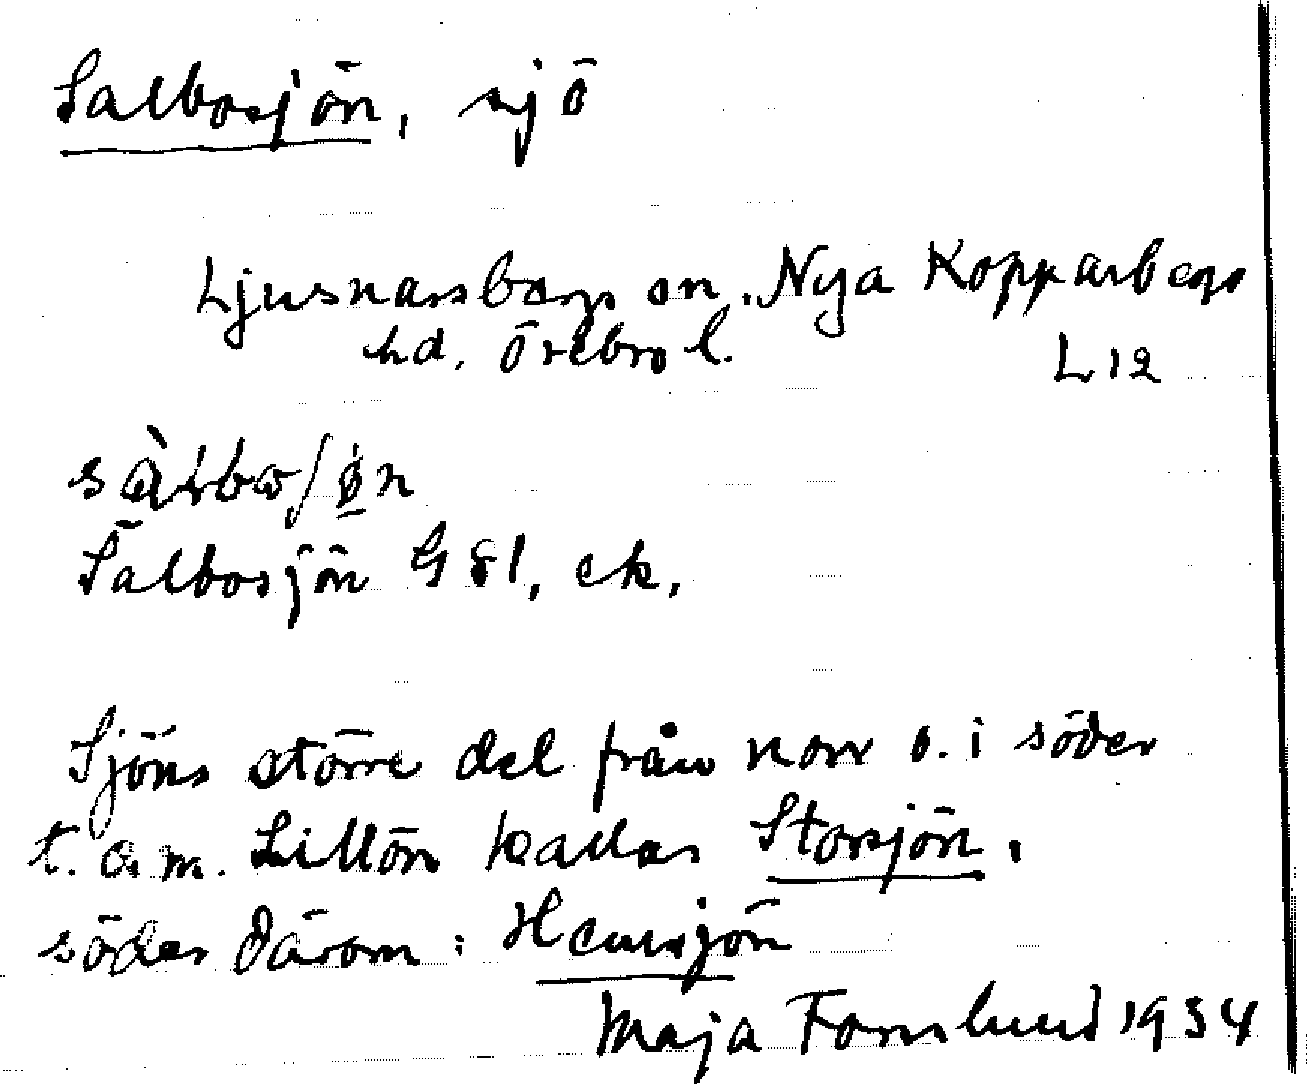 Salbosjön, sjö
Ljusnarsbergs sn. Nya Kopparbergs
hd. Örebro l.
L 12
Salbosjön G 81, ek.
Sjöns större del från norr o. i söder
t. o. m. Lillön kallas Storsjön,
söder därom: Hemsjön
Maja Forslund 1934